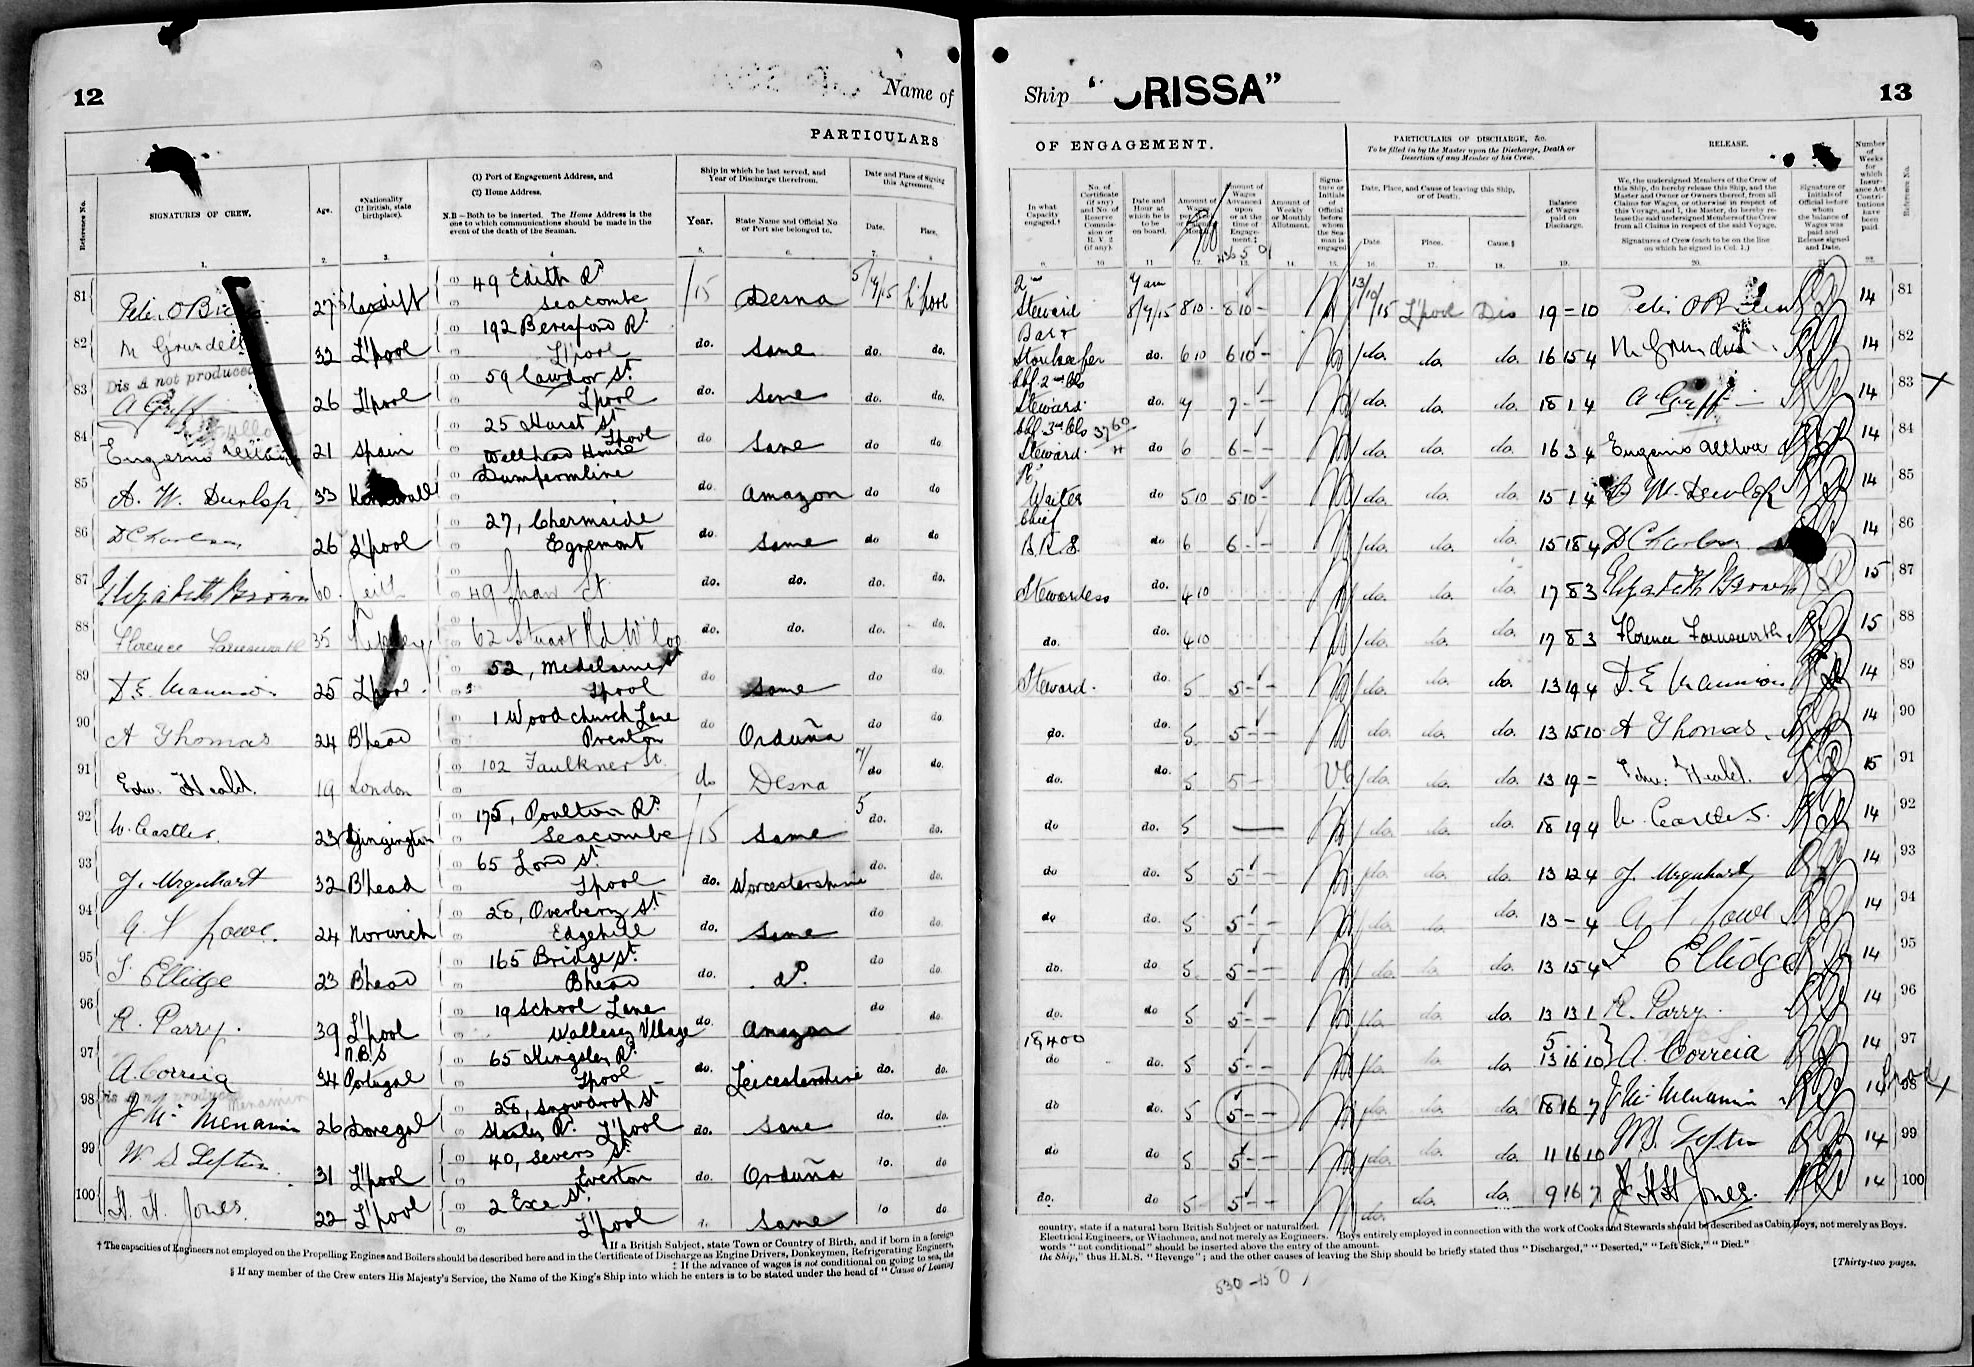 12
Name of
PARTICULARS
Reference No.
SIGNATURES OF CREW.
Age.
*Nationality
(If British, state
birthplace).
(1) Port of Engagement Address, and
(2) Home Address.
N.B—Both to be inserted. The Home Address is the
one to which communications should be made in the
event of the death of the Seaman.
Ship in which he last served, and
Year of Discharge therefrom.
Year.
State Name and Official No
or Port she belonged to.
Date and Place of Signing
this Agreement.
Date.
Place.
81 27 Cardiff 49 Edith Rd Seacombe /15 Desna 5/9/15 L'pool
82 M Grundell 32 L'pool 192 Beresford Rd L'pool do. Same do. do.
Dis A not produced
83 A Griff 26 L'pool 59 Cawdor St L'pool do. Same do. do.
84 Eugenio 21 Spain 25 Hurst St L'pool do Same do do
85 A. W. Dunlop 33 Wellhead House Dumfermline do. Amazon do do.
86 D Charlson 26 L'pool 27, Chermside Egremont do. Same do do
87 Elizabeth Brown 60 Leith 49 Shaw St do. do. do. do.
88 Florence Farnsworth 35 62 Stuart Rd do. do. do. do.
89 D.E. Mannion 25 L'pool 52, Madelaine St L'pool do Same do do.
90 A Thomas 24 B'head 1 Woodchurch Lane Prenton do Orduña do do.
91 Edw. Heald. 19 London 102 Faulkner St. do Desna 7/ do do.
92 W. Castles 23 175, Poulton Rd Seacombe /15 Same 5 do. do.
93 J. Urquhart 32 B'head 65 Lord St. L'pool do. Worcestershire do. do.
94 G F Lowe. 24 Norwich 28, Overbery St Edgehill do. Same do do.
95 Ellidge 23 B'head 165 Bridge St. B'head do. do. do do.
96 R. Parry. 39 L'pool 19 School Lane Wallesey Village do. Amazon do do.
97 A. Correia 34 N.B.S Potugal 65 Kingsley Rd L'pool do. Leicestershire do. do.
Dis A not produced
98 J Mc Menamin 26 Donegal 28, Snowdrop St Stanley Rd. L'pool do. Same do. do.
99 W. S Lefton 31 L'pool 40, Severs St. Everton do. Orduña do. do
100 H. H. Jones. 22 L'pool 2 Exe St. L'pool Same do do
* If a British Subject, state Town or Country of Birth, and if born in a foreign
† The capacities of Engineers not employed on the Propelling Engines and Boilers should be described here and in the Certificate of Discharge as Engine Drivers, Donkeymen, Refrigerating Engineers,
‡ If the advance of wages is not conditional on going to sea, the
§ If any member of the Crew enters His Majesty's Service, the Name of the King's Ship into which he enters is to be stated under the head of "Cause of Leaving
Ship "ORISSA"
13
OF ENGAGEMENT.
PARTICULARS OF DISCHARGE, &c.
To be filled in by the Master upon the Discharge, Death or
Desertion of any Member of his Crew.
RELEASE.
In what
Capacity
engaged.†
No. of
Certificate
(if any)
and No. of
Reserve
Commis-
sion or
R. V. 2
(if any).
Date and
Hour at
which he is
to be
on board.
Amount of
Wages
Amount of
Wages
Advanced
upon
or at the
time of
Engage-
ment.‡
Amount of
Weekly
or Monthly
Allotment.
Signa-
ture or
Initials
of
Official
before
whom
the Sea-
man is
engaged
Date, Place, and Cause of leaving this Ship,
or of Death.
Date.
Place.
Cause.§
Balance
of Wages
paid on
Discharge.
We, the undersigned Members of the Crew of
this Ship, do hereby release this Ship, and the
Master and Owner or Owners thereof, from all
Claims for Wages, or otherwise in respect of
this Voyage, and I, the Master, do hereby re-
lease the said undersigned Members of the Crew
from all Claims in respect of the said Voyage.
Signatures of Crew (each to be on the line
on which he signed in Col. 1.)
Signature or
Initials of
Official before
whom
the balance of
Wages was
paid and
Release signed
and Date.
Number
of
Weeks
for
which
Insur-
ance Act
Contri-
butions
have
been
paid.
Reference No.
2nd Steward 7 am 8/9/15 8 10 - 8 10 - 13/10/15 L'pool Dis 19 = 10 14 81
Bar & Storekeeper do. 6 10 6 10 - do. do. do. 16 15 4 M Grundell 14 82
Steward. do. 7 7 - - do. do. do. 18 1 4 A Griff 14 83 X
Steward. do 6 6 - - do. do. do. 16 3 4 Eugenio 14 84
Waiter do 5 10 5 10 - do. do. do. 15 1 4 W. Dunlop 14 85
Chief B.R.S. do 6 6 - - do. do. do. 15 18 4 D Charlson 14 86
Stewardess do. 4 10 do. do. do. 17 8 3 Elizabeth Brown 15 87
do. do. 4 10 do. do. do. 17 8 3 Florence Farnsworth 15 88
Steward. do. 5 5 - - do. do. do. 13 19 4 D. E Mannion 14 89
do. do. 5 5 - - do. do. do. 13 15 10 A Thomas. 14 90
do. do. 5 5 - do. do. do. 13 19 - Edw. Heald. 15 91
do do. 5 — do. do. do. 18 19 4 W. Castles. 14 92
do do. 5 5 - - do. do. do. 13 12 4 J. Urquhart 14 93
do do. 5 5 - - do. do. do. 13 - 4 G F Lowe 14 94
do. do. 5 5 - - do. do. do. 13 15 4 Ellidge 14 95
do. do 5 5 - - do. do. do. 13 13 1 R. Parry. 14 96
do do. 5 5 - - do. do. do. 13 16 10 A. Correia 14 97
do do. 5 5 - - do. do. do. 18 16 7 J Mc Menamin 14 98 X
do do. 5 5 - - do. do. do. 11 16 10 W S. Lefton 14 99
do. do 5 5 - - do. do. do. 9 16 7 H H Jones. 14 100
country, state if a natural born British Subject or naturalized.
Electrical Engineers, or Winchmen, and not merely as Engineers. Boys entirely employed in connection with the work of Cooks and Stewards should be described as Cabin Boys, not merely as Boys.
words "not conditional" should be inserted above the entry of the amount.
the Ship," thus H.M.S. "Revenge"; and the other causes of leaving the Ship should be briefly stated thus "Discharged," "Deserted," "Left Sick," "Died."
[Thirty-two pages.